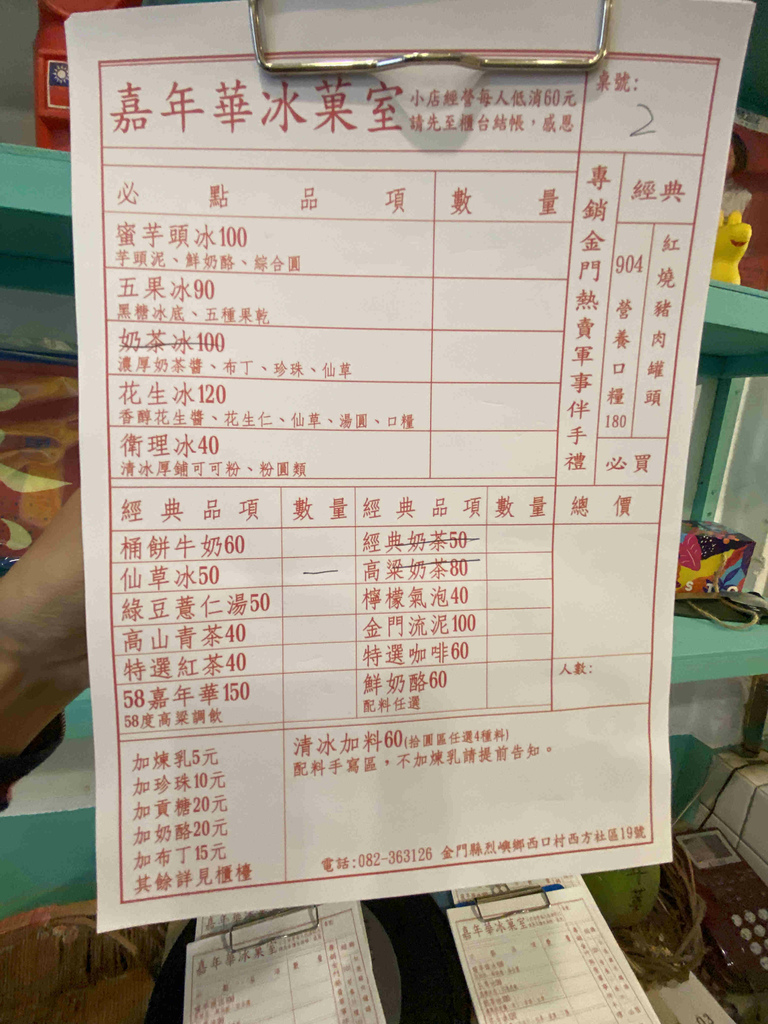 嘉年華冰菓室
小店經營每人低消60元
請先至櫃台結帳，感恩
桌號:
2
必點品項 數量
蜜芋頭冰100
芋頭泥、鮮奶酪、綜合圓
五果冰90
黑糖冰底、五種果乾
奶茶冰100
濃厚奶茶醬、布丁、珍珠、仙草
花生冰120
香醇花生醬、花生仁、仙草、湯圓、口糧
衛理冰40
清冰厚鋪可可粉、粉圓類
專銷金門熱賣軍事伴手禮
經典
紅燒豬肉罐頭
904營養口糧180
必買
經典品項 數量 經典品項 數量 總價
桶餅牛奶60 經典奶茶50
仙草冰50 一 高梁奶茶80
綠豆薏仁湯50 檸檬氣泡40
高山青茶40 金門流泥100
特選紅茶40 特選咖啡60
58嘉年華150 鮮奶酪60
58度高粱調飲 配料任選
人數:
加煉乳5元
加珍珠10元
加貢糖20元
加奶酪20元
加布丁15元
其餘詳見櫃檯
清冰加料60(拾圓區任選4種料)
配料手寫區，不加煉乳請提前告知。
電話:082-363126 金門縣烈嶼鄉西口村西方社區19號
嘉年華冰菓室
嘉年華冰菓室